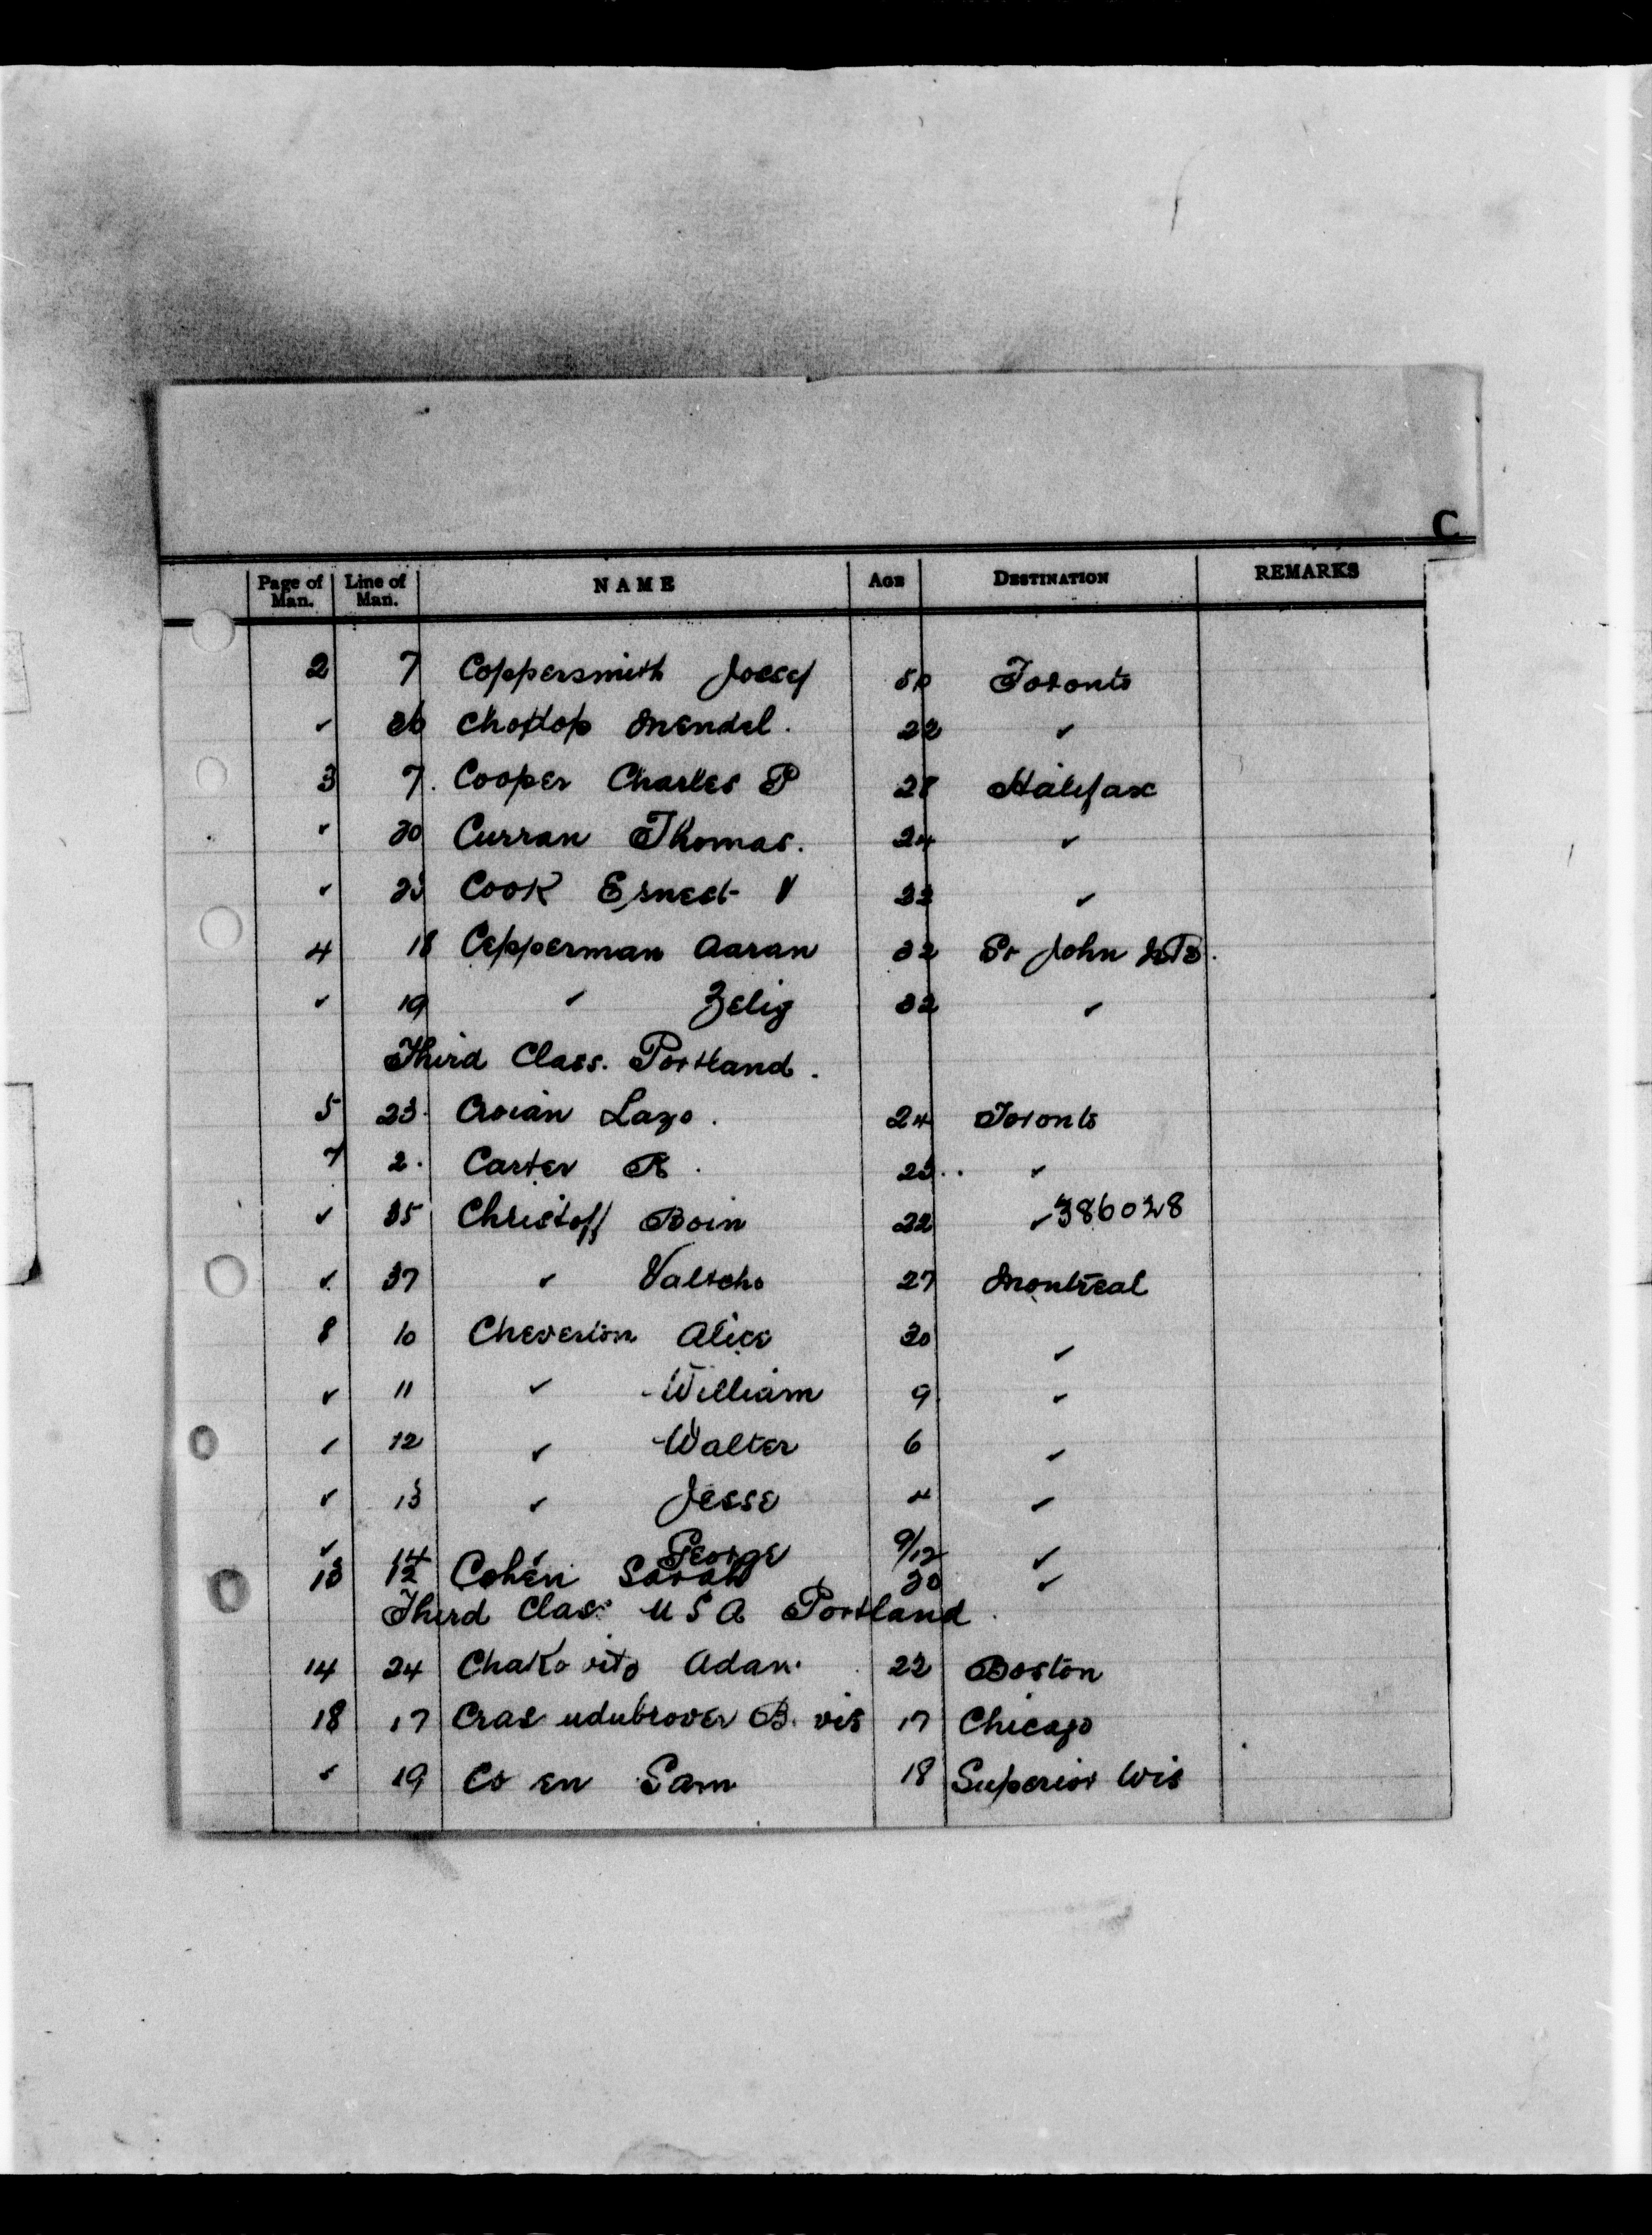 C
Page of Man. Line of Man. NAME AGE DESTINATION REMARKS
2 7 Coppersmith Josef 50 Toronto
✓ 36 Choptop Mendel. 22 ✓
3 7. Cooper Charles P 28 Halifax
✓ 20 Curran Thomas. 24 ✓
✓ Cook Ernest V ✓
4 18 Cepperman Aaran 32 St John NB.
✓ 19 ✓ Zelig 32 ✓
Third Class. Portland.
5 23. Croian Lazo. 24 Toronto
7 2. Carter R. 23.. ✓
✓ 35 Christoff Boin 22 ✓ 386028
✓ 37 ✓ Valtcho 27 Montreal
8 10 Cheverton Alice 30 ✓
✓ 11 ✓ William 9 ✓
✓ 12 ✓ Walter 6 ✓
✓ 13 ✓ Jesse 4 ✓
✓ 14 ✓ George 9/12 ✓
13 12 Cohen Sarah 20 ✓
Third Class U S A Portland.
14 24 Chako vitz Adam. 22 Boston
18 17 Cras udubrover B. vis 17 Chicago
✓ 19 Co en Sam 18 Superior Wis